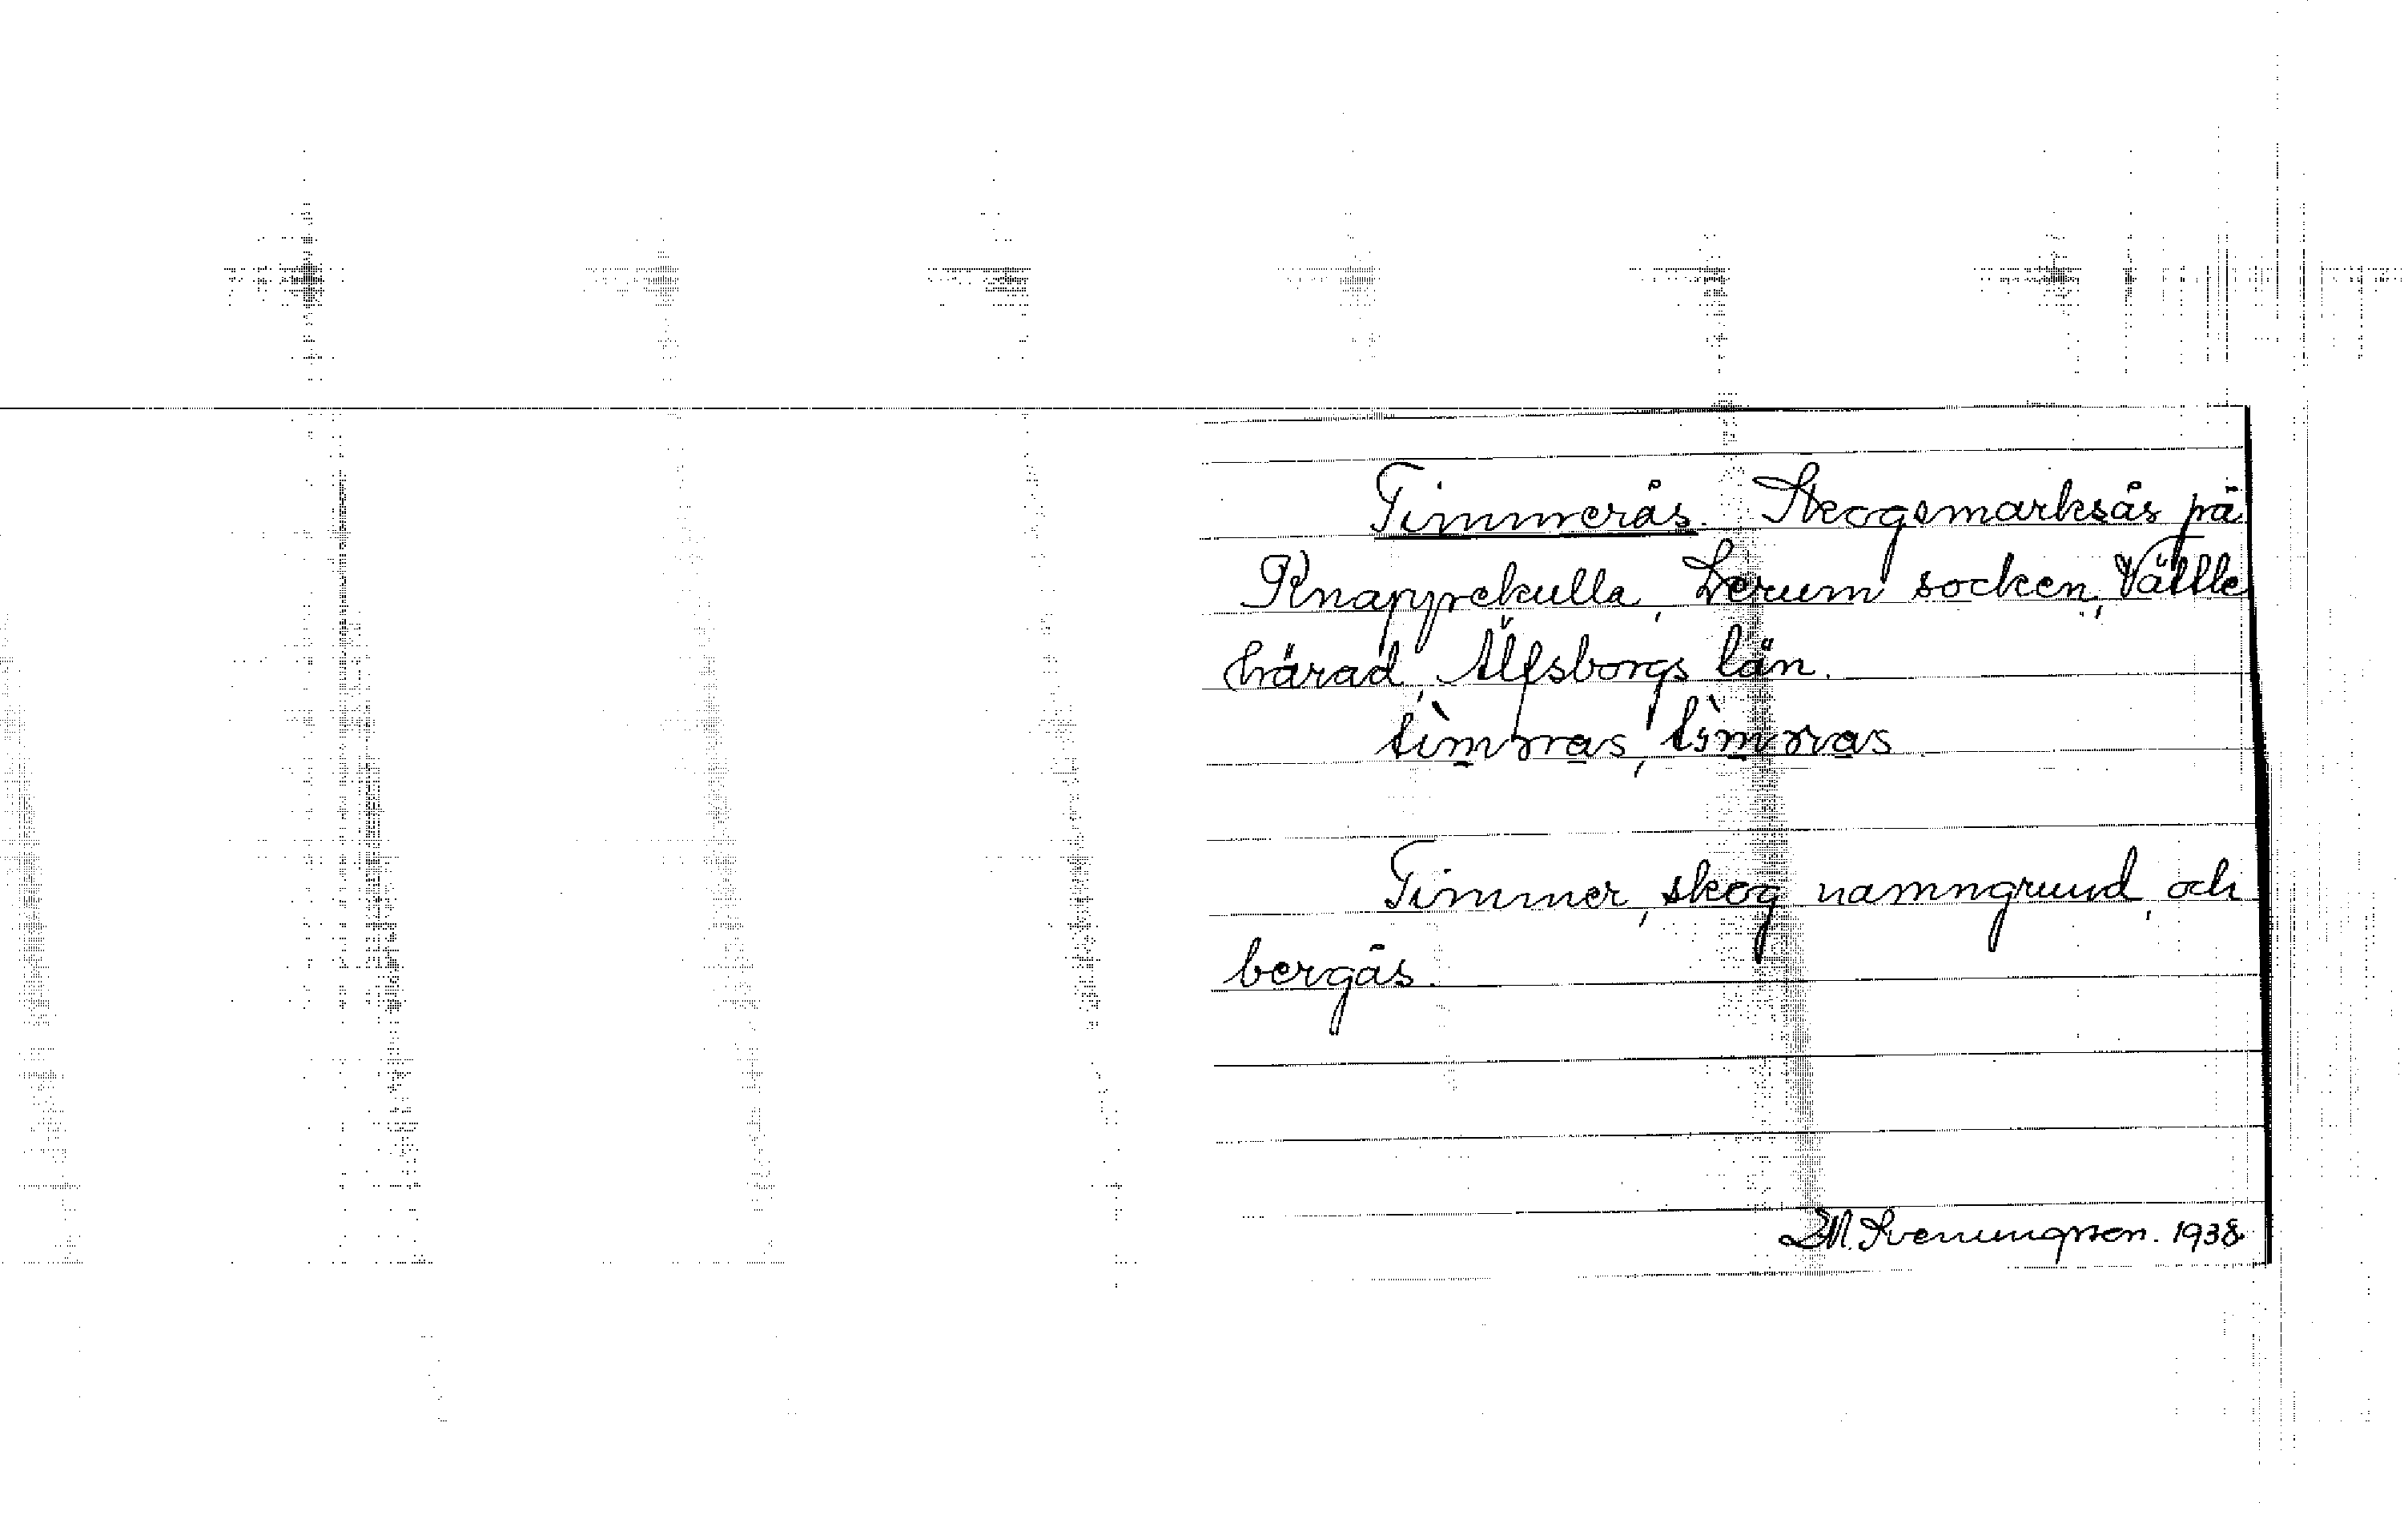 Timmerås. Skogsmarksås på
Knappekulla, Lerum socken, Vättle
härad, Älfsborgs län.
Timmer, skog namngrund, och
bergås.
Svenungsson. 1938